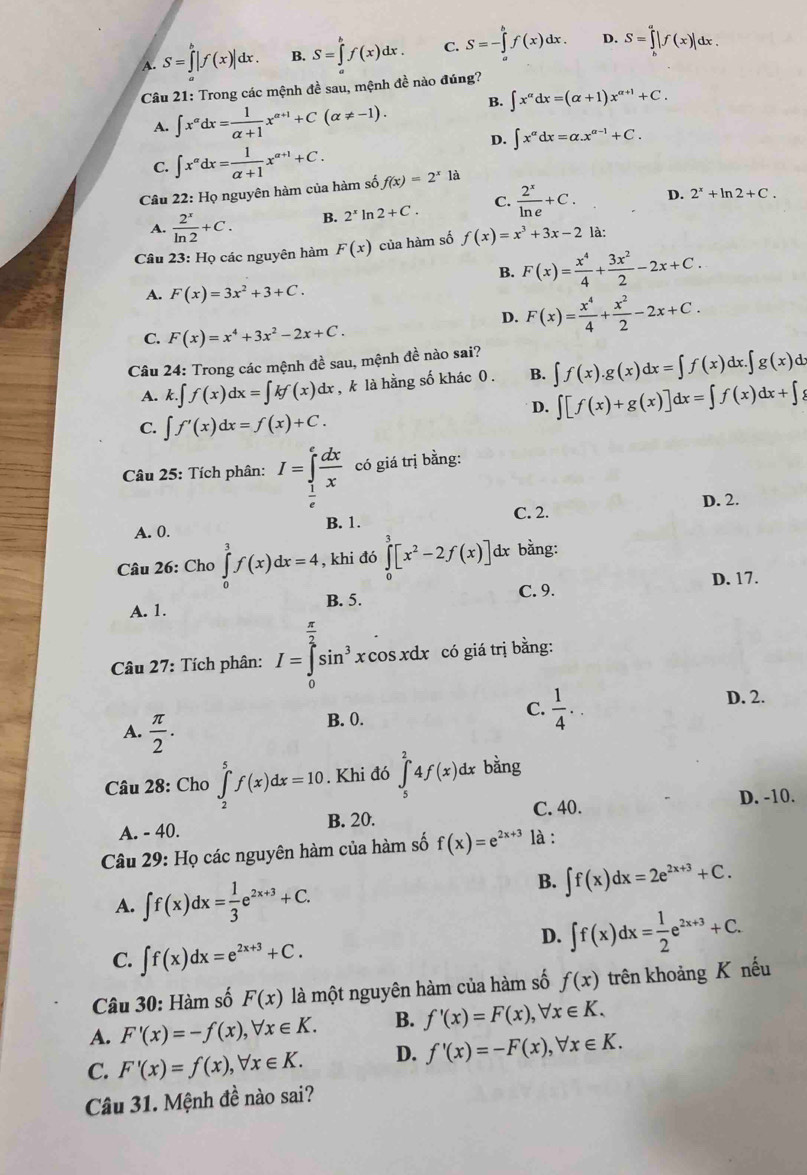 A. S = ∫_a^b |f(x)|dx. B. S = ∫_a^b f(x)dx. C. S = -∫_a^b f(x)dx. D. S = ∫_b^a |f(x)|dx.
Câu 21: Trong các mệnh đề sau, mệnh đề nào đúng?
A. ∫x^α dx = 1/(α+1) x^(α+1) + C (α ≠ -1). B. ∫x^α dx = (α+1)x^(α+1) + C.
C. ∫x^α dx = 1/(α+1) x^(α+1) + C. D. ∫x^α dx = α.x^(α-1) + C.
Câu 22: Họ nguyên hàm của hàm số f(x) = 2^x là
A. 2^x/ln 2 + C. B. 2^x ln 2 + C. C. 2^x/ln e + C. D. 2^x + ln 2 + C.
Câu 23: Họ các nguyên hàm F(x) của hàm số f(x) = x³ + 3x - 2 là:
A. F(x) = 3x² + 3 + C. B. F(x) = x⁴/4 + 3x²/2 - 2x + C.
C. F(x) = x⁴ + 3x² - 2x + C. D. F(x) = x⁴/4 + x²/2 - 2x + C.
Câu 24: Trong các mệnh đề sau, mệnh đề nào sai?
A. k.∫f(x)dx = ∫kf(x)dx, k là hằng số khác 0. B. ∫f(x).g(x)dx = ∫f(x)dx.∫g(x)d
C. ∫f'(x)dx = f(x) + C. D. ∫[f(x) + g(x)]dx = ∫f(x)dx + ∫
Câu 25: Tích phân: I = ∫_(1/e)^e dx/x có giá trị bằng:
A. 0. B. 1. C. 2. D. 2.
Câu 26: Cho ∫_0^3 f(x)dx = 4, khi đó ∫_0^3 [x² - 2f(x)]dx bằng:
A. 1. B. 5. C. 9. D. 17.
Câu 27: Tích phân: I = ∫_0^(π/2) sin³ x cos xdx có giá trị bằng:
A. π/2. B. 0. C. 1/4. D. 2.
Câu 28: Cho ∫_2^5 f(x)dx = 10. Khi đó ∫_5^2 4f(x)dx bằng
A. - 40. B. 20. C. 40. D. -10.
Câu 29: Họ các nguyên hàm của hàm số f(x) = e^(2x+3) là :
A. ∫f(x)dx = 1/3 e^(2x+3) + C. B. ∫f(x)dx = 2e^(2x+3) + C.
C. ∫f(x)dx = e^(2x+3) + C. D. ∫f(x)dx = 1/2 e^(2x+3) + C.
Câu 30: Hàm số F(x) là một nguyên hàm của hàm số f(x) trên khoảng K nếu
A. F'(x) = -f(x), ∀x ∈ K. B. f'(x) = F(x), ∀x ∈ K.
C. F'(x) = f(x), ∀x ∈ K. D. f'(x) = -F(x), ∀x ∈ K.
Câu 31. Mệnh đề nào sai?